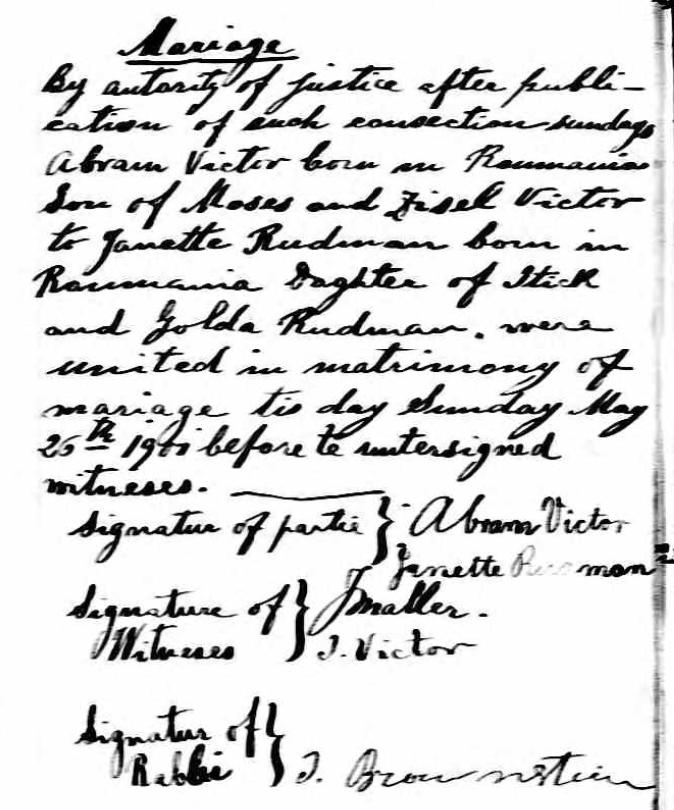 Mariage
By autority of justice after publi-
cation of such consection sundays
Abram Victor born in Roumania
Son of Moses and Zisel Victor
to Janette Rudman born in
Roumania Daghter of Itick
and Golda Rudman. were
united in matrimony of
mariage tis day Sunday May
26th 1901 before te untersigned
witneses.
Signatur of partie } Abram Victor
Janette man
Signature of } J maller.
Witneses J. Victor
Signatur of }
Rabbi J. Brownstein